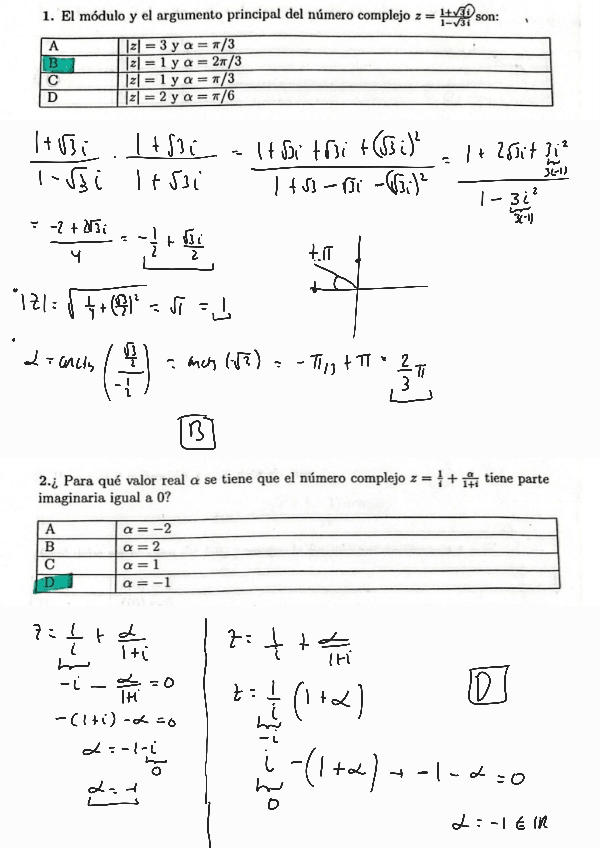 1. El módulo y el argumento principal del número complejo z = (1+√3i)/(1−√3i) son:
A |z| = 3 y α = π/3
B |z| = 1 y α = 2π/3
C |z| = 1 y α = π/3
D |z| = 2 y α = π/6
(1+√3i)/(1−√3i) · (1+√3i)/(1+√3i) = (1+√3i+√3i+(√3i)²)/(1+√3−√3i−(√3i)²) = (1+2√3i+3i²)/(1−3i²)
3(-1)
3(-1)
= (-2+2√3i)/4 = -1/2 + √3i/2
+π
|z| = √(1/4+(√3/2)²) = √1 = 1
= -π/3 + π = 2/3 π
B
2.¿ Para qué valor real α se tiene que el número complejo z = 1/i + α/(1+i) tiene parte
imaginaria igual a 0?
A α = −2
B α = 2
C α = 1
D α = −1
z = 1/i + α/(1+i)
-i - α/(1+i) = 0
-(1+i) - α = 0
α = -1-i
0
α = -1
z = 1/i + α/(1+i)
z = 1/i (1+α)
-i
i -(1+α) → -1-α = 0
0
α = -1 ∈ ℝ
D